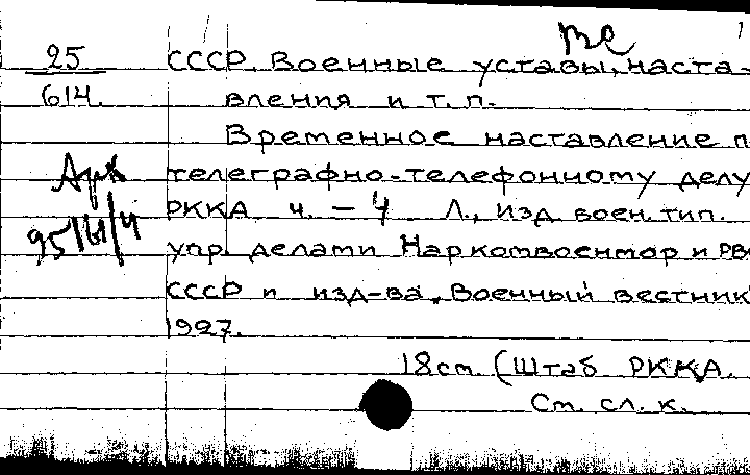 1
25 СССР. Военные уставы, наста-
614. вления и т. п.
Временное наставление п
телеграфно-телефонному делу
РККА ч. – 4 Л., изд. воен. тип.
упр. делами Наркомвоенмор и РВ
СССР и изд-ва „Военный вестник
1927.
18 см. (Штаб РККА.
См. сл. к.
Арх
95/61/4